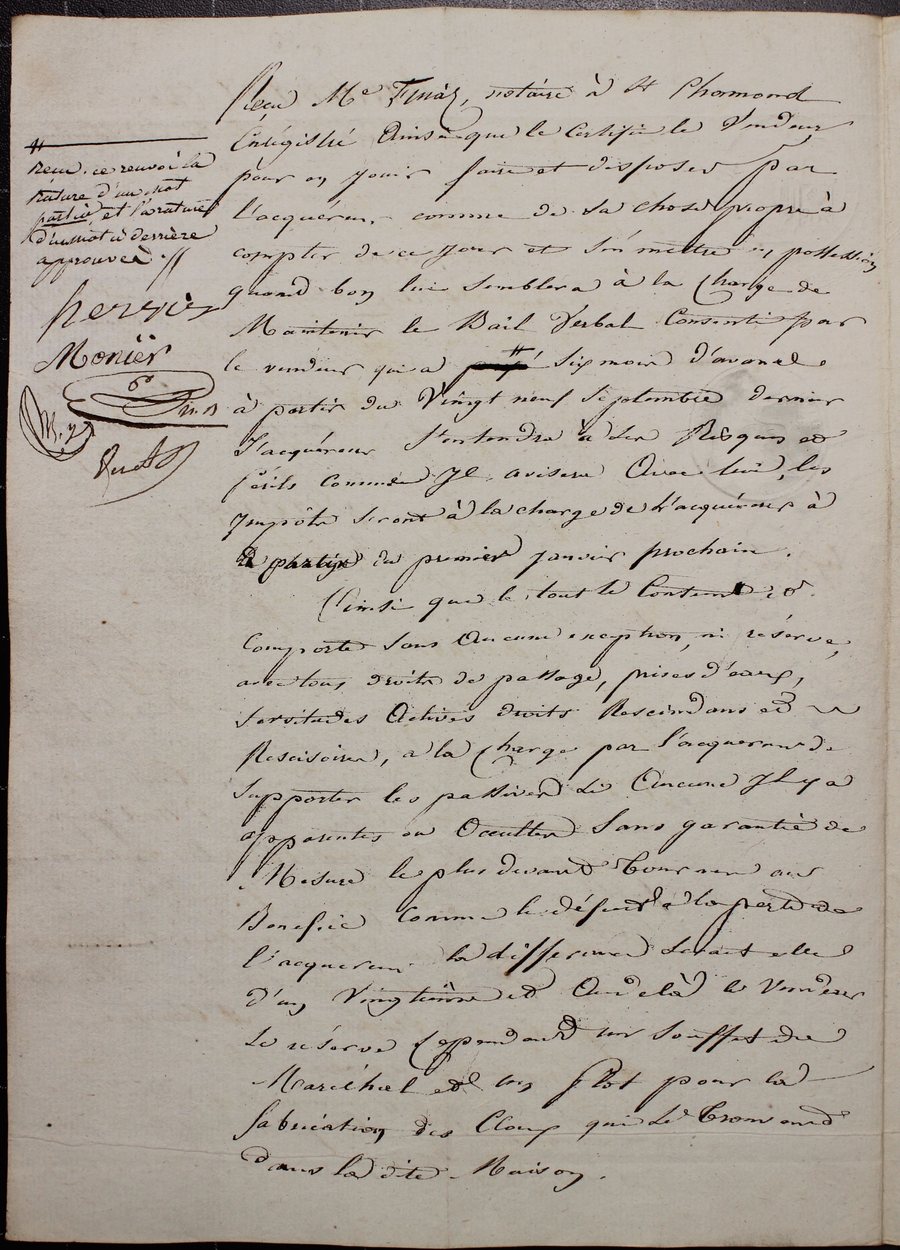 Reçu Me Finaz, notaire à St Chamond
Enrégistré Ainsi que le Certifie le Vendeur
pour en jouir faire et disposer par
l'acquéreur comme de sa chose propre à
compter de ce jour et s'en mettre en possession
quand bon lui semblera à la Charge de
Maintenir le Bail Verbal Consenti par
le vendeur qui a # six mois d'avance
à partir du Vingt neuf Septembre dernier
l'acquéreur s'entendra à ses Risques et
périls comme Il avisera Avec lui, les
Impôts seront à la charge de l'acquéreur à
partir du premier janvier prochain.
Ainsi que le tout se Contient et
Comporte sans Aucune exception, ni réserve,
avec tous droits de passage, prises d'eaux,
servitudes Actives droits Rescindans et
Rescisoires, a la Charge par l'acquereur de
supporter les passives si Aucune Il y a
apparentes ou Occultes Sans garantie de
Mesure le plus devant Tourner au
Benefice Comme le déficit à la perte de
l'acquereur la difference serait elle
d'un Vingtième et Au delà le Vendeur
se réserve Cependant un soufflet de
Maréchal et un pour la
fabrication des Cloux qui se Trouvent
dans la dite Maison.
# ce renvoi la
rature d'un mot
partie et la rature
d'un mot ci derrière
approuvée.
hervier
Monier